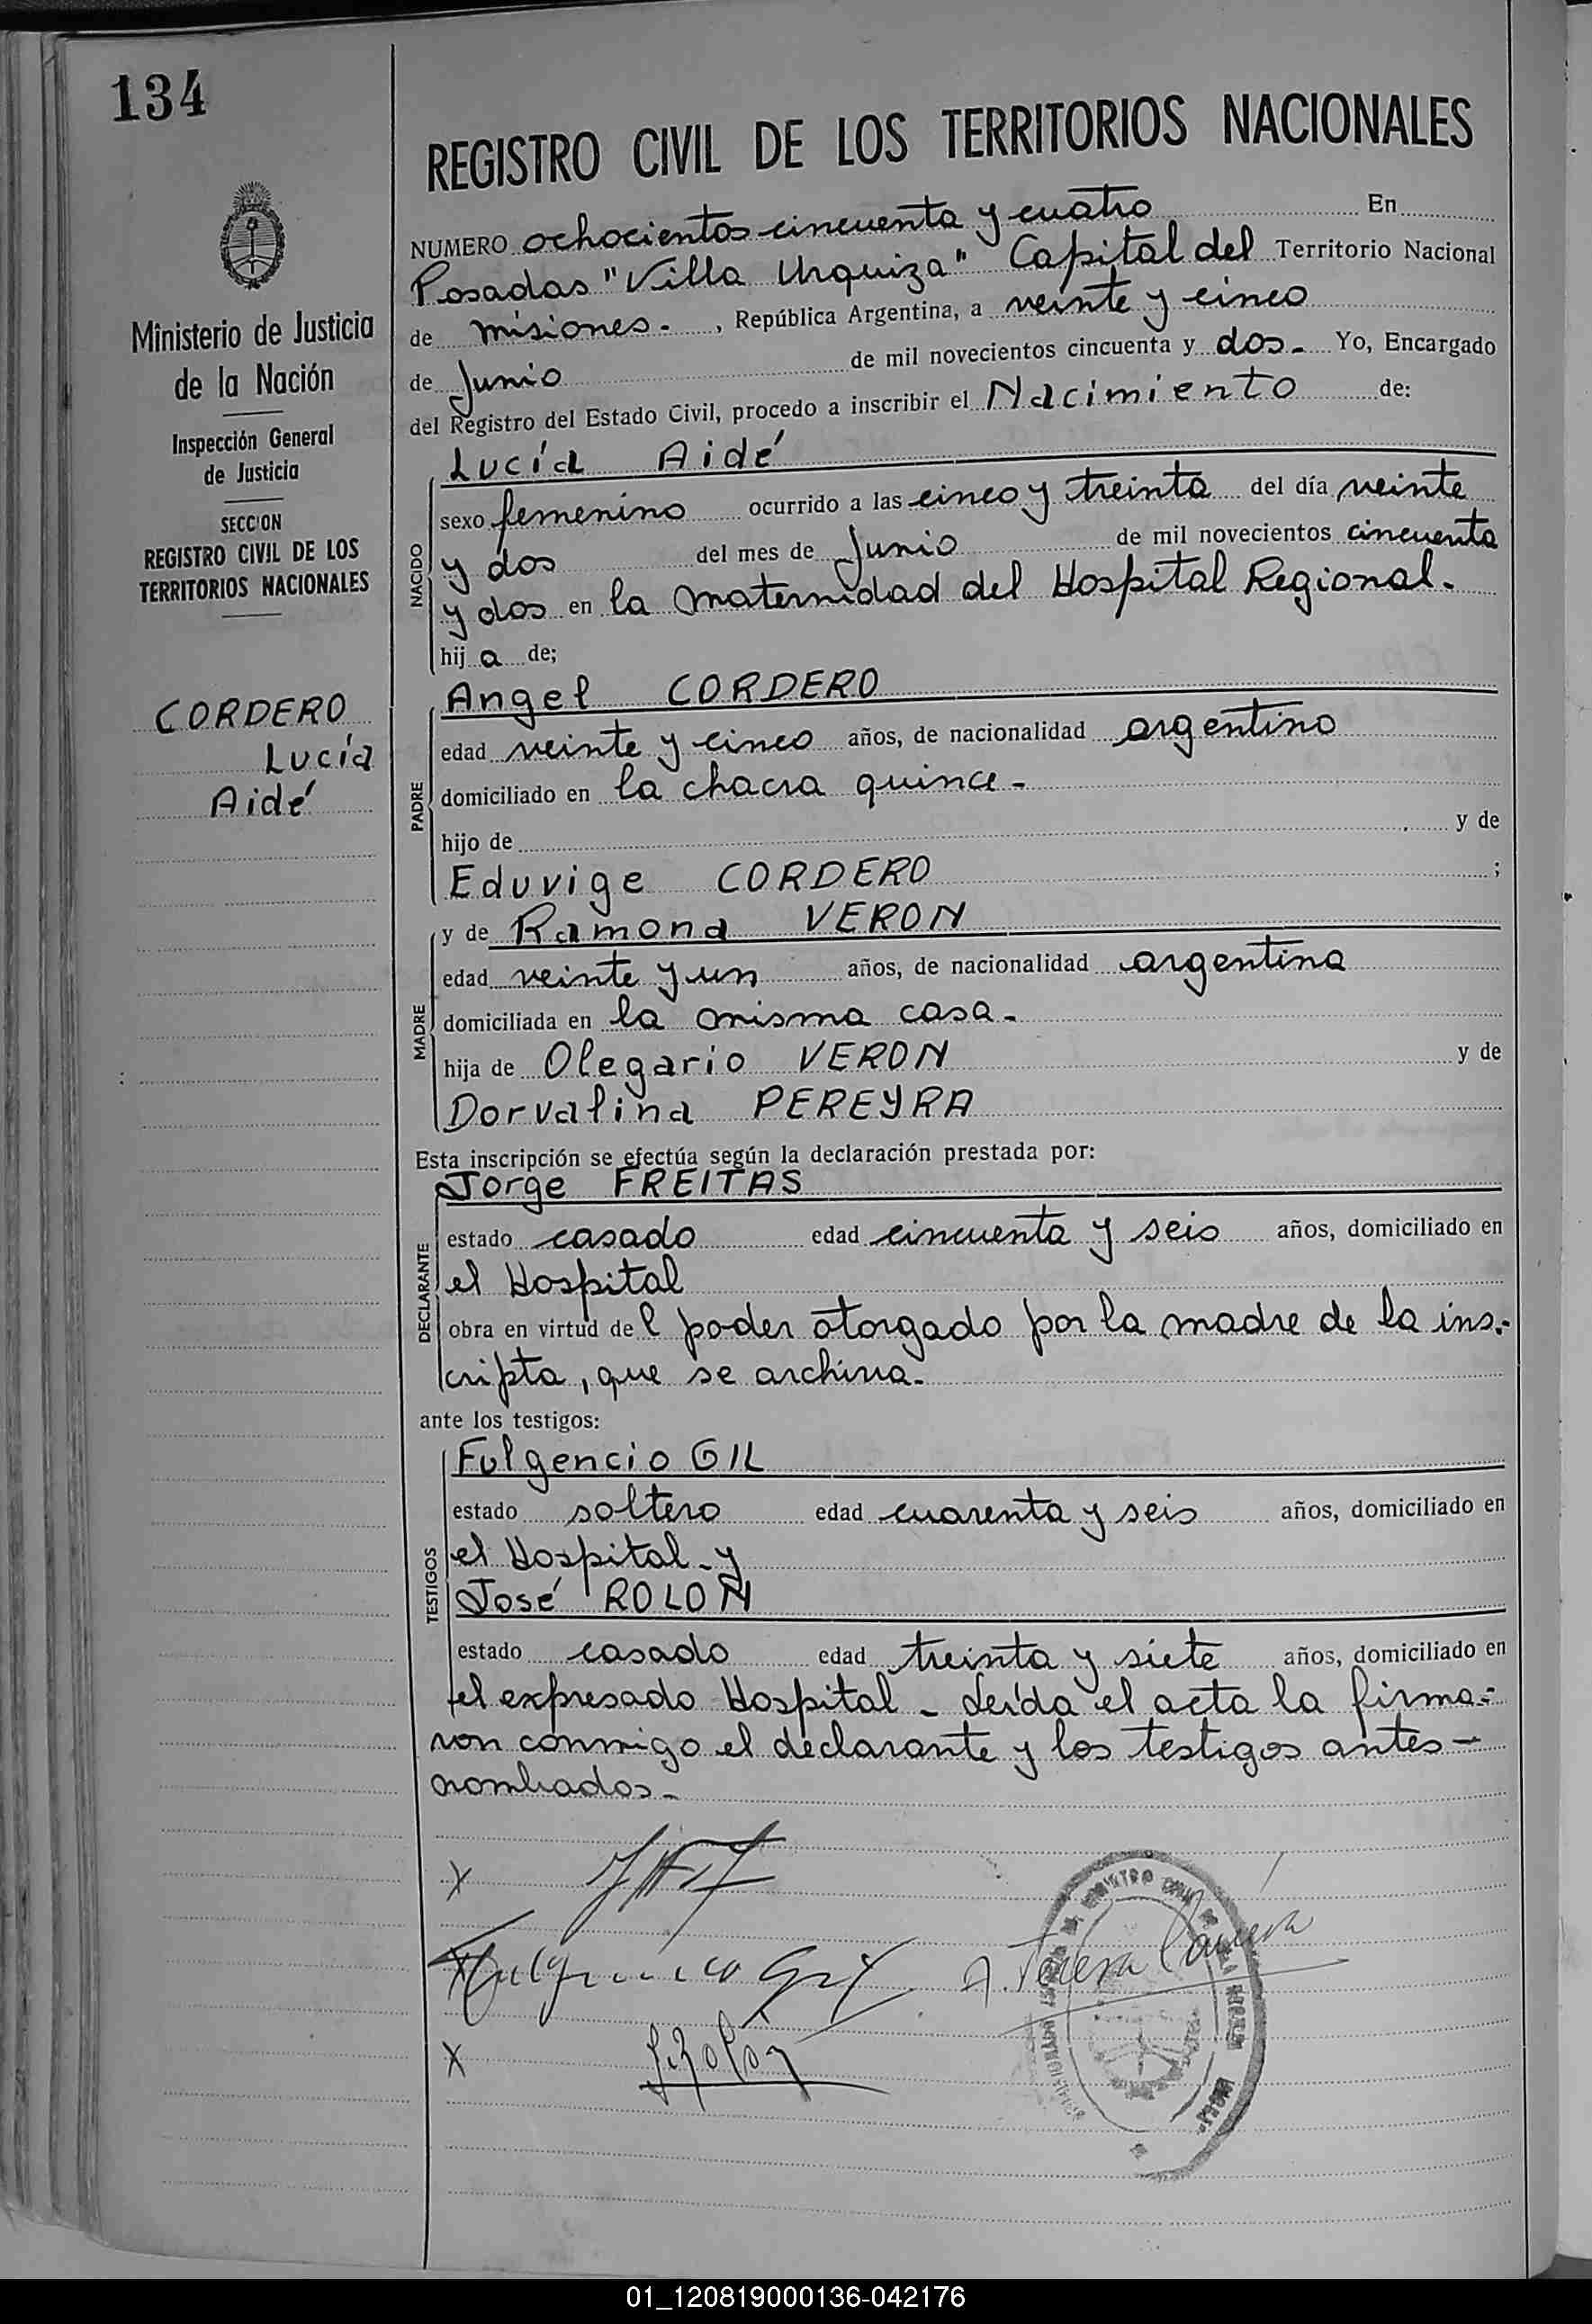 134
REGISTRO CIVIL DE LOS TERRITORIOS NACIONALES
Ministerio de Justicia
de la Nación
Inspección General
de Justicia
SECCION
REGISTRO CIVIL DE LOS
TERRITORIOS NACIONALES
CORDERO
Lucía
Aidé
NUMERO ochocientos cincuenta y cuatro En
Posadas "Villa Urquiza" Capital del Territorio Nacional
de misiones. , República Argentina, a veinte y cinco
de Junio de mil novecientos cincuenta y dos. Yo, Encargado
del Registro del Estado Civil, procedo a inscribir el Nacimiento de:
NACIDO
Lucía Aidé
sexo femenino ocurrido a las cinco y treinta del día veinte
y dos del mes de Junio de mil novecientos cincuenta
y dos en la maternidad del Hospital Regional.
hij a de;
PADRE
Angel CORDERO
edad veinte y cinco años, de nacionalidad argentino
domiciliado en la chacra quince -
hijo de y de
Eduvige CORDERO ;
MADRE
y de Ramona VERON
edad veinte y un años, de nacionalidad argentina
domiciliada en la misma casa -
hija de Olegario VERON y de
Dorvalina PEREYRA
Esta inscripción se efectúa según la declaración prestada por:
DECLARANTE
Jorge FREITAS
estado casado edad cincuenta y seis años, domiciliado en
el Hospital
obra en virtud de l poder otorgado por la madre de la ins.-
cripta, que se archiva.
ante los testigos:
TESTIGOS
Fulgencio GIL
estado soltero edad cuarenta y seis años, domiciliado en
el Hospital - y
José ROLON
estado casado edad treinta y siete años, domiciliado en
el expresado Hospital - Leída el acta la firma-
ron conmigo el declarante y los testigos antes -
nombrados -
X
X Fulgencio Gil
A. Teresa
X J. Rolón
01_120819000136-042176